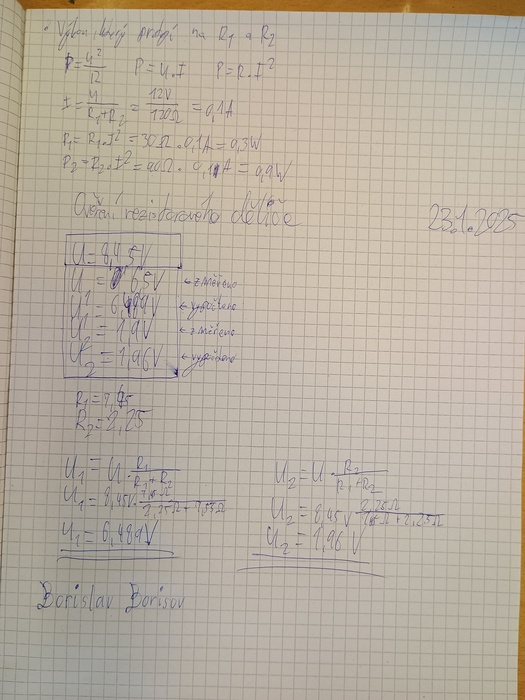 · Výkon, který prdpí na R₁ a R₂
P=U²/R P=U.I P=R.I²
I=U/R₁+R₂ = 12V/120Ω = 0,1A
P₁=R₁.I²=30Ω.0,1A=0,3W
P₂=R₂.I²=90Ω.0,1A=0,9W
Ověření rezistorového děliče 23.1.2025
U=8,45V
U₁=6,5V ←změřeno
U₁=6,489V ←vypočteno
U₂=1,9V ←změřeno
U₂=1,96V ←vypočteno
R₂=2,25
U₁=U.R₁/R₁+R₂ U₂=U.R₂/R₁+R₂
U₁=8,45V. U₂=8,45V.2,25Ω
U₁=6,489V U₂=1,96V
Borislav Borisov